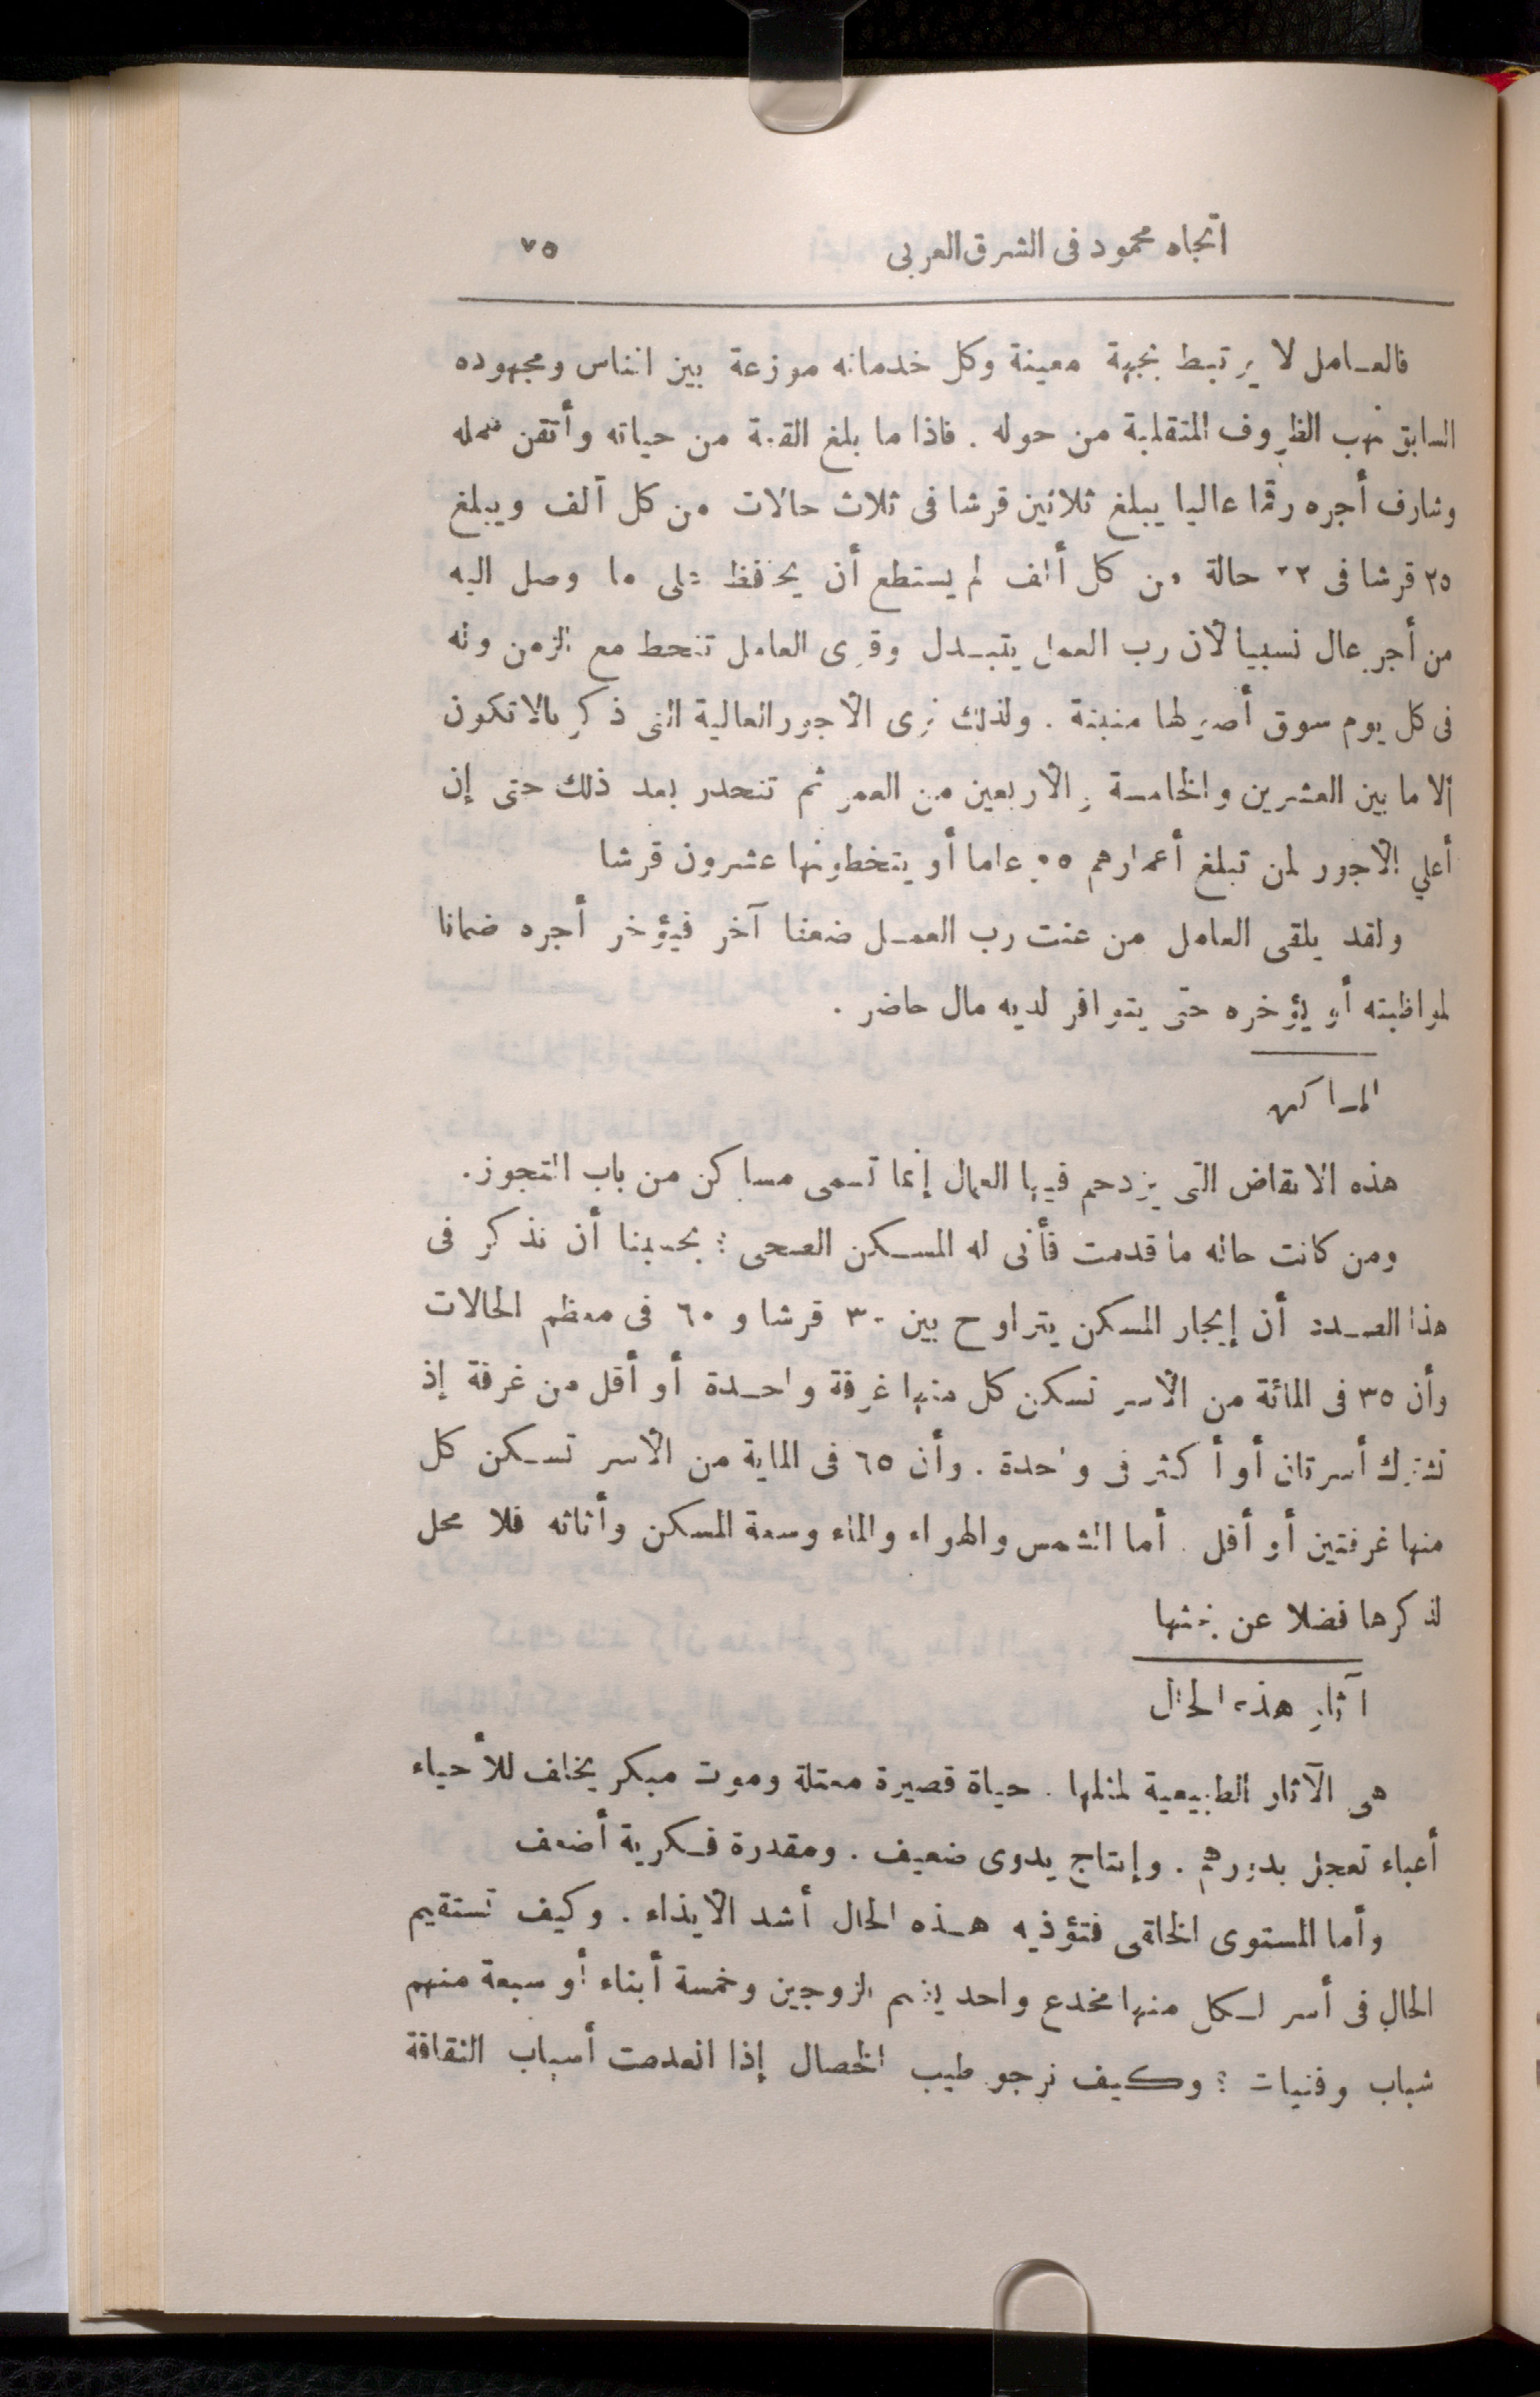 اتجاه محمود فى الشرق العربى ٧٥
فالعامل لا يرتبط بجهة معينة وكل خدماته موزعة بين الناس ومجهوده
السابق نهب الظروف المتقلبة من حوله . فاذا ما بلغ القمة من حياته وأتقن عمله
وشارف أجره رقما عاليا يبلغ ثلاثين قرشا فى ثلاث حالات من كل ألف ويبلغ
٢٥ قرشا فى حالة من كل ألف لم يستطع أن يحافظ على ما وصل اليه
من أجر عال نسبيا لأن رب العمل يتبدل وقوى العامل تنحط مع الزمن وله
فى كل يوم سوق أصولها منبتة . ولذلك نرى الأجور العالية التى ذكر بالا تكون
الا ما بين العشرين والخامسة والأربعين من العمر ثم تنحدر بعد ذلك حتى إن
أعلي الأجور لمن تبلغ أعمارهم عاما أو يتخطونها عشرون قرشا
ولقد يلقى العامل من عنت رب العمل ضعفا آخر فيؤخر أجره ضمانا
لمواظبته أو يؤخره حتى يتوافر لديه مال حاضر .
المساكن
هذه الانقاض التى يزدحم فيها العمال إنما تسمى مساكن من باب التجوز .
ومن كانت حاله ما قدمت فأنى له المسكن الصحى ؟ بحسبنا أن نذكر فى
هذا الصدد أن إيجار المسكن يتراوح بين ٣٠ قرشا و ٦٠ فى معظم الحالات
وأن ٣٥ فى المائة من الأسر تسكن كل منها غرفة واحدة أو أقل من غرفة إذ
تشترك أسرتان أو أكثر فى واحدة . وأن ٦٥ فى الماية من الأسر تسكن كل
منها غرفتين أو أقل . أما الشمس والهواء والماء وسعة المسكن وأثاثه فلا محل
لذكرها فضلا عن بحثها
آثار هذه الحال
هى الآثار الطبيعية لمثلها . حياة قصيرة معتلة وموت مبكر يخلف للأحياء
أعباء تعجل بدورهم . وإنتاج يدوى ضعيف . ومقدرة فكرية أضعف
وأما المستوى الخلقى فتؤذيه هذه الحال أشد الايذاء . وكيف تستقيم
الحال فى أسر لكل منها مخدع واحد يضم الزوجين وخمسة أبناء أو سبعة منهم
شباب وفتيات ؟ وكيف نرجو طيب الخصال إذا انعدمت أسباب الثقافة